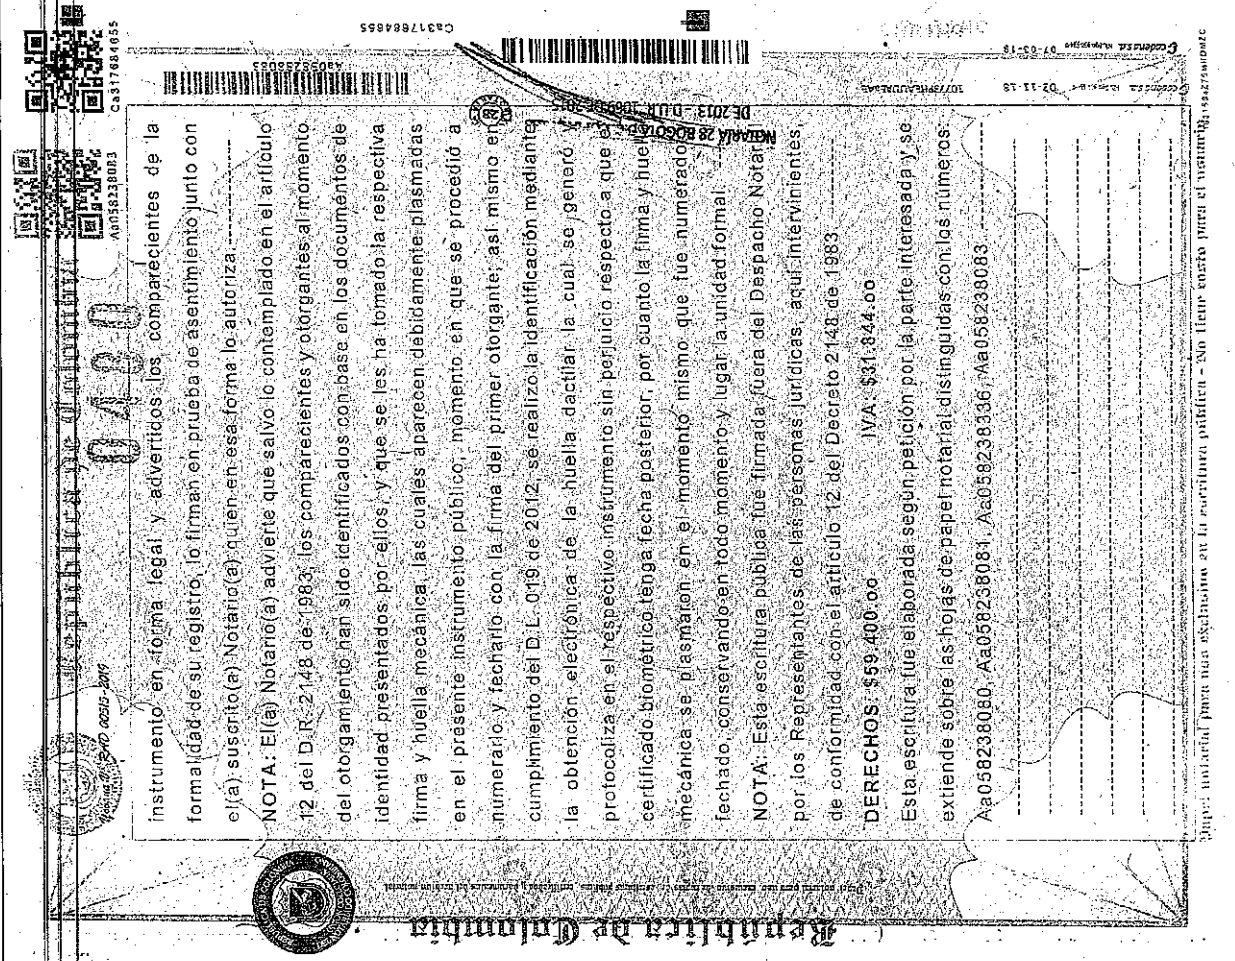 República de Colombia
Página 2. RAD 00515-2019
0480
Aa058238083
Ca317684655
instrumento en forma legal y advertidos los comparecientes de la
formalidad de su registro, lo firman en prueba de asentimiento junto con
el(a) suscrito(a) Notario(a) quien en esa forma lo autoriza.
NOTA: El(a) Notario(a) advierte que salvo lo contemplado en el artículo
12 del D.R. 2148 de 1983, los comparecientes y otorgantes al momento
del otorgamiento han sido identificados con base en los documentos de
identidad presentados por ellos, y que se les ha tomado la respectiva
firma y huella mecánica, las cuales aparecen debidamente plasmadas
en el presente instrumento público, momento en que se procedió a
numerarlo y fecharlo con la firma del primer otorgante; así mismo en
cumplimiento del D.L. 019 de 2012, se realizó la identificación mediante
la obtención electrónica de la huella dactilar la cual se generó y
protocoliza en el respectivo instrumento sin perjuicio respecto a que el
certificado biométrico tenga fecha posterior, por cuanto la firma y huella
mecánica se plasmaron en el momento mismo que fue numerado
fechado, conservando en todo momento y lugar la unidad formal.
NOTA: Esta escritura pública fue firmada fuera del Despacho Notarial
por los Representantes de las personas jurídicas aquí intervinientes,
de conformidad con el artículo 12 del Decreto 2148 de 1983.
DERECHOS $59.400.oo IVA: $31.844.oo
Esta escritura fue elaborada según petición por la parte interesada y se
extiende sobre las hojas de papel notarial distinguidas con los números:
Aa058238080, Aa058238081, Aa058238336, Aa058238083
Papel notarial para uso exclusivo en la escritura pública - No tiene costo para el usuario
República de Colombia
Aa058238083
Ca317684655
NOTARÍA 28 BOGOTÁ D.C.
DE 2013 - D.U.R. 1069 DE 2015
02-11-18
07-03-19